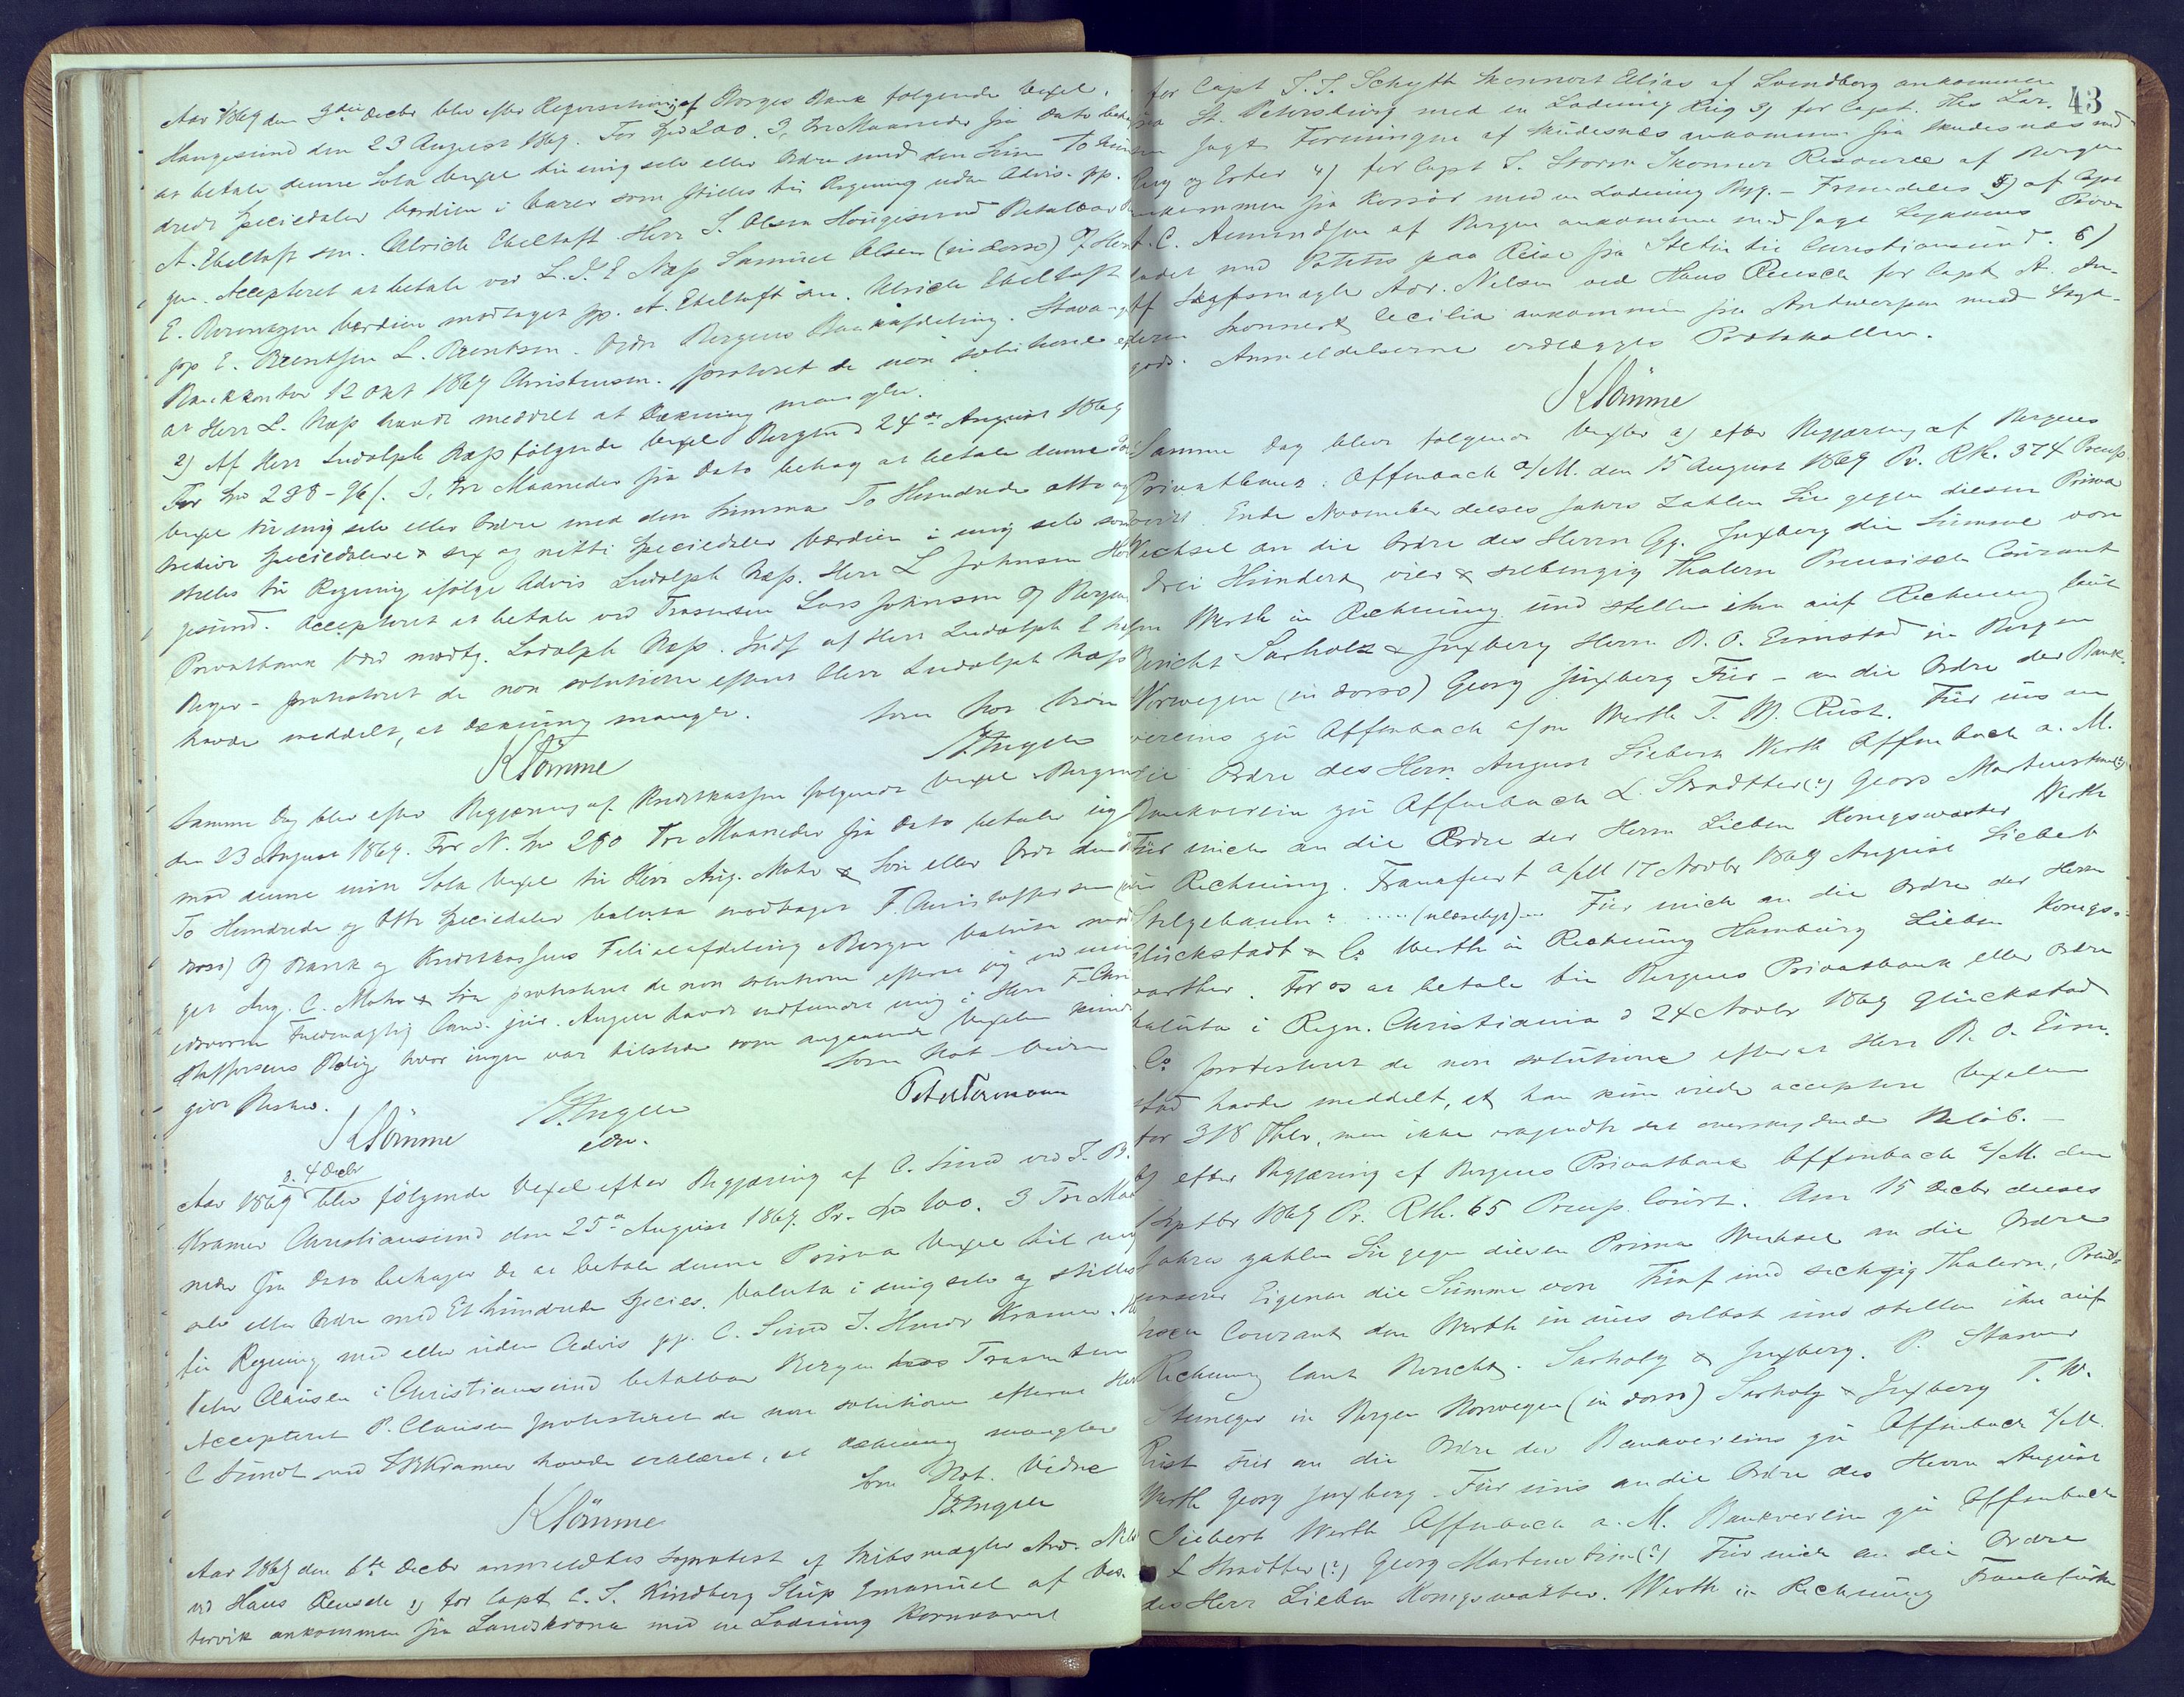 Aar 1869 den 3die Decbr blev efter Reqvisition af Norges Bank følgende Vexel.
Haugesund den 23 August 1869. For Spd 200. 3, tre Maaneder fra Dato behag
at betale denne Sola Vexel til mig selv eller Ordre med den Sum To Hun
drede Speciedaler Værdien i Varer som stilles til Regning uden Advis. pp.
A. Ebeltoft sen. Ulrich Ebeltoft Herr S. Olsen Hougesund Betalbar
gen. Accepteret at betale ved L. J. E Næss Samuel Olsen (in dorso) Til Herr
E. Berentzen Værdien modtaget pp. A. Ebeltoft sen. Ulrich Ebeltoft
pp E. Berentsen L. Berentsen. Ordre Bergens Bankafdeling. Stavanger
Bankkontor 12 Okt 1869 Christensen. protesteret de non solutione efter
at Herr L. Næss havde meddelt at Dækning mangler.
2) Af Herr Ludolph Næss følgende Vexel Bergen d 24de August 1869
For Spd 288-96/. 3, tre Maaneder fra Dato behag at betale denne Sola
Vexel til mig selv eller Ordre med den Summa To Hundrede otte og
tredive Speciedalere & sex og nitti Speciedaler Værdien i mig selv som
stilles til Regning ifølge Advis Ludolph Næss. Herr L Johnsen Hau
gesund. Accepteret at betale ved Trasenten Lars Johnsen Til Bergens
Privatbank Værd modtg. Ludolph Næss. Indf af Herr Ludolph
Berger - protesteret de non solutione efterat Herr Ludolph Næss
havde meddelt, at dækning mangler. som Not Vidne
KTømme Unger
Samme Dag blev efter Begjæring af Kreditkassen følgende Vexel Bergen
den 23 August 1869. For N. Spd 280 Tre Maaneder fra Dato betaler jeg
mod denne min Sola Vexel til Herr Aug. Mohr & Søn eller Ordre den
To Hundrede og Otte Speciedaler Valuta modtaget F. Christoffersen (in
dorso) Til Bank og Kreditkassens Filialafdeling Bergen Valuta modta
get Aug. C. Mohr & Søn protesteret de non solutione efterat jeg ved min
edsvorne Fuldmægtig Cand. jur. Unger havde indfundet mig i Herr F. Chri
stoffersens Bolig, hvor ingen var tilstede som angaaende Vexelen kunde
give Besked. som Not. Vidne
KTømme Unger Peter Formann
edsv.
d. 4 Decbr
Aar 1869 blev følgende Vexel efter Begjæring af C. Sund ved J. B.
Kramer Christiansund den 25de August 1869. Pr. Spd 100. 3 Tre Maa
neder fra Dato behager De at betale denne Prima Vexel til mig
selv eller Ordre med Et hundrede Species. Valuta i mig selv og stilles
til Regning med eller uden Advis pp. C. Sund J. Kramer.
Peter Clausen i Christiansund betalbar Bergen hos Trasenten
Accepteret P. Clausen protesteret de non solutione efterat Herr
C Sundt ved JBKramer havde erklæret, at Dækning mangler
som Not. Vidne
KTømme Unger
Aar 1869 den 6te Decbr anmeldtes Søprotest af Skibsmægler Adr. Nels
ved Hans Reusch 1) for Capt C. J. Kindberg Slup Emanuel af Ves
tervik ankommen fra Landskrona med en Ladning Kornvarer
43
for Capt J. J. Schytt Skonnert Elias af Svendborg ankommen
fra St. Petersburg med en Ladning Rug 3) for Capt. Hes Lar-
sen Jagt Foreningen af Skudesnæs ankommen fra Skudesnæs med
Rug og Erter 4) for Capt J. Storm Skonner Resource af Bergen
ankommen fra Korsør med en Ladning Byg. - Fremdeles 5) af Capt
A. C. Amundsen af Bergen ankommen med Jagt
ladet med Potetes paa Reise fra Stettin til Christiansund. 6)
Af Skipsmægler Adr. Nelsen ved Hans Reusch for Capt A. An-
dersen Skonnert Cecilia ankommen fra Antwerpen med Styk-
gods. Anmeldelserne vedlægges Protokollen.
KTømme
Samme Dag blev følgende Vexler a) efter Begjæring af Bergens
Privatbank: Offenbach a/M. den 15 August 1869 Pr. Rth. 374 Preuss.
Ende November dieses Jahrs zahlen Sie gegen diesen Prima
Wechsel an die Ordre des Herrn Gg. Juxberg die Summe von
Drei Hundert vier & siebenzig Thalern Preusisch Courant
den Werth in Rechnung und stellen ihn auf Rechnung laut
Bericht Sarholz & Juxberg Herrn B. O. Eimstad in Bergen
Norwegen (in dorso) Georg Juxberg Für - an die Ordre des Bank-
vereins zu Offenbach a/m Werth T. W. Rüst. Für uns an
die Ordre des Herrn August Siebert Werth Offenbach a. M.
Bankverein zu Offenbach L. Stradtter(?) Georg Martinstein(?)
Für mich an die Ordre der Herrn Lieben Konigswarter Werth
in Rechnung. Frankfurt a/M 17 Novbr 1869 August Siebert
Stelgebaum? ..... (ulæseligt) ... Für mich an die Ordre der Herrn
Glückstadt & Co Werth in Rechnung Hamburg Lieben Konigs-
warther. For os at betale til Bergens Privatbank eller Ordre
Valuta i Regn. Christiania d 24 Novbr 1869 Glückstad
& Co protesteret de non solutione efterat Herr B. O. Eim-
stad havde meddelt, at han kun vilde acceptere Vexelen
for 318 Thlr, men ikke vedgjendte det overskydende Beløb. -
b) efter Begjæring af Bergens Privatbank Offenbach a/M. den
1 Septbr 1869 Pr. Rth. 65 Preuss. Court. Am 15 Decbr dieses
Jahres zahlen Sie gegen diesen Prima Wechsel an die Ordre
unserer Eigenen die Summe von Fünf und sechzig Thalern, Preus-
sisch Courant den Werth in uns selbst und stellen ihn auf
Rechnung laut Bericht. Sarholz & Juxberg. P.
in Bergen Norwegen (in dorso) Sarholz & Juxberg T. W.
Rüst Für an die Ordre des Bankvereins zu Offenbach a/M.
Werth Georg Juxberg. Für uns an die Ordre des Herrn August
Siebert Werth Offenbach a. M. Bankverein zu Offenbach
L Stradtter(?) Georg Martinstein(?) Für mich an die Ordre
des Herr Lieben Konigswarther. Werth in Rechnung Frankfurt